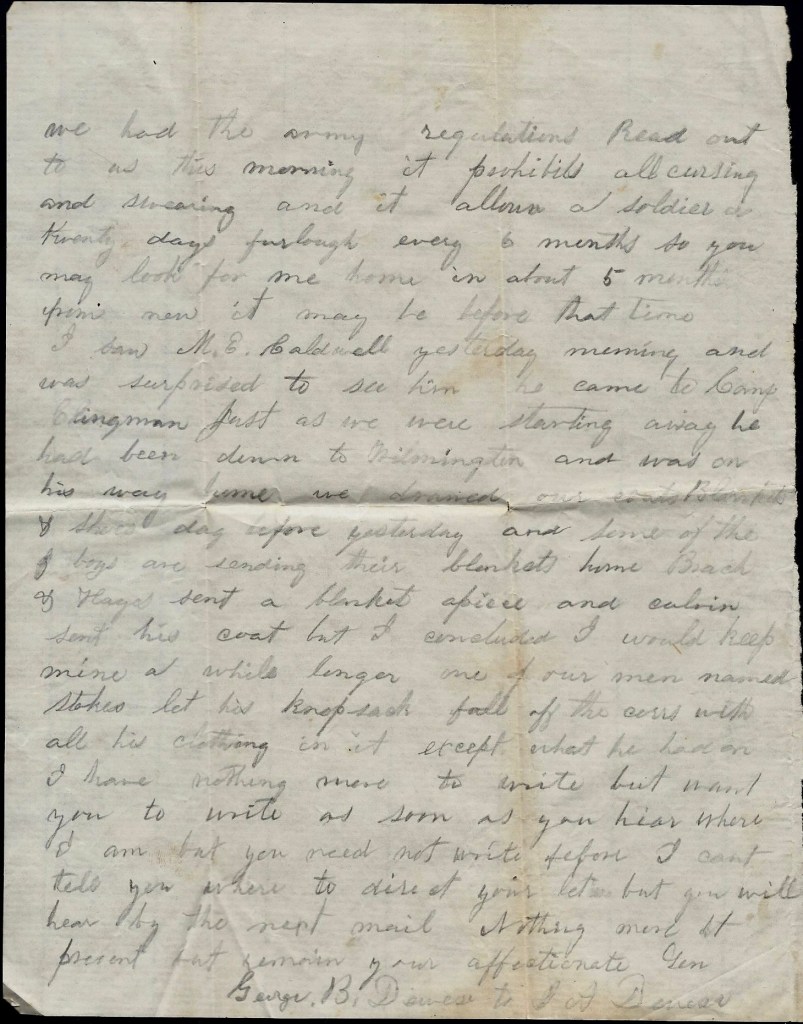 we had the army regulations Read out
to us this morning it prohibits all cursing
and swearing and it allows a soldier a
twenty days furlough every 6 months so you
may look for me home in about 5 months
from now it may be before that time
I saw M. E. Caldwell yesterday morning and
was surprised to see him he came to Camp
Clingman Just as we were starting away he
had been down to Wilmington and was on
his way home we drawed our coats Blankets
& shoes day before yesterday and some of the
boys are sending their blankets home
& Hays sent a blanket apiece and calvin
sent his coat but I concluded I would keep
mine a while longer one of our men named
Stokes let his knapsack fall off the carrs with
all his clothing in it except what he had on
I have nothing more to write but want
you to write as soon as you hear where
I am but you need not write before I cant
tell you where to direct your letter but you will
hear by the next mail Nothing more at
present but remain your affectionate Son
George. B. Deweese to